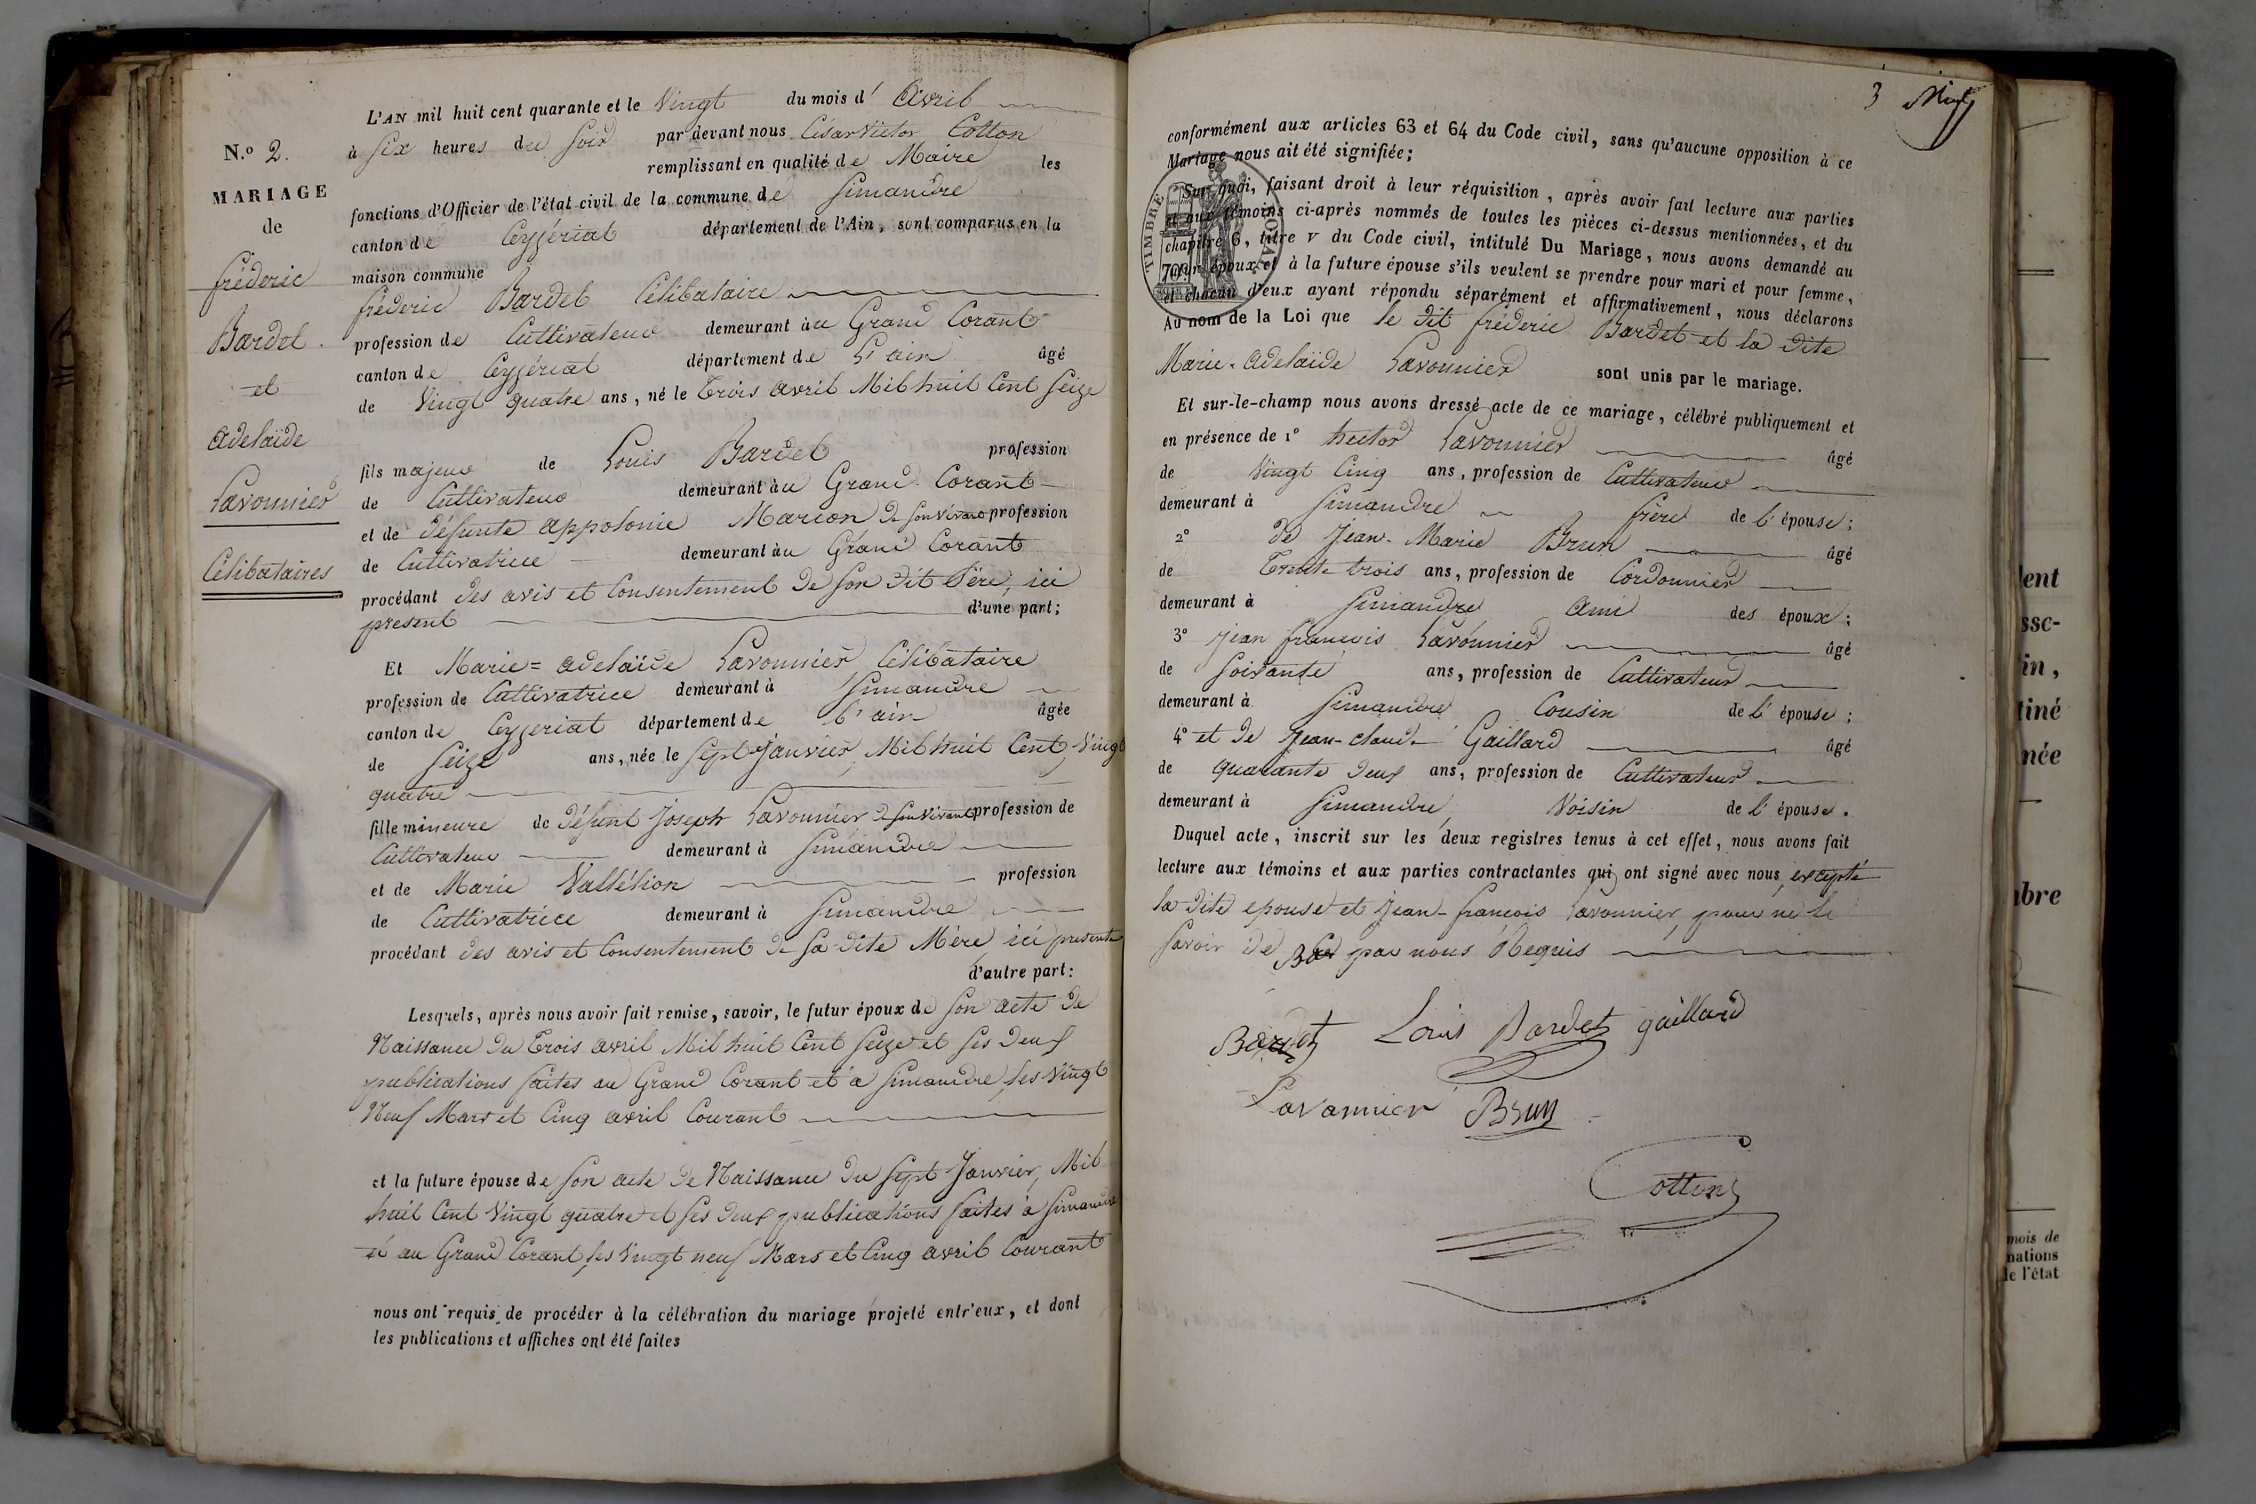 N.º 2.
MARIAGE
de
fréderic
Bardet
et
adelaïde
Lavonnier
Célibataires
L'AN mil huit cent quarante et le Vingt du mois d' Avril
à Six heures du Soir par devant nous César Victor Cotton
remplissant en qualité de Maire les
fonctions d'Officier de l'état civil de la commune de Simandre
canton de Ceyzériat département de l'Ain, sont comparus en la
maison commune
fréderic Bardet Célibataire
profession de Cultivateur demeurant au Grand Corant
canton de Ceyzériat département de L'ain âgé
de Vingt quatre ans, né le Trois avril Mil huit Cent Seize
fils majeur de Louis Bardet profession
de Cultivateur demeurant au Grand Corant
et de défunte appolonie Marion de son vivant profession
de Cultivatrice demeurant au Grand Corant
procédant des avis et Consentement de son dit Père, ici
present d'une part;
Et Marie = adelaïde Lavonnier Célibataire
profession de Cultivatrice demeurant à Simandre
canton de Ceyzeriat département de l'ain âgée
de Seize ans, née le Sept Janvier, Mil huit Cent, Vingt
quatre
fille mineure de défunt Joseph Lavonnier de son vivant profession de
Cultivateur demeurant à Simandre
et de Marie Vallélion profession
de Cultivatrice demeurant à Simandre
procédant des avis et Consentement de sa dite Mère, ici presente
d'autre part:
Lesquels, après nous avoir fait remise, savoir, le futur époux de son acte de
Naissance du Trois avril Mil huit Cent Seize et ses deux
publications faites au Grand Corant et a Simandre, les Vingt
Neuf Mars et Cinq avril Courant
et la future épouse de son acte de Naissance du Sept Janvier, Mil
huit Cent Vingt quatre et ses deux publications faites à Simandre
et au Grand Corant, les Vingt neuf Mars et Cinq avril Courant
nous ont requis de procéder à la célébration du mariage projeté entr'eux, et dont
les publications et affiches ont été faites
3
conformément aux articles 63 et 64 du Code civil, sans qu'aucune opposition à ce
Mariage nous ait été signifiée;
Sur quoi, faisant droit à leur réquisition, après avoir fait lecture aux parties
et aux témoins ci-après nommés de toutes les pièces ci-dessus mentionnées, et du
chapitre 6, titre V du Code civil, intitulé Du Mariage, nous avons demandé au
futur époux et à la future épouse s'ils veulent se prendre pour mari et pour femme,
et chacun d'eux ayant répondu séparément et affirmativement, nous déclarons
Au nom de la Loi que le dit fréderic Bardet et la dite
Marie-adelaïde Lavonnier sont unis par le mariage.
TIMBRE ROYAL
70c
Et sur-le-champ nous avons dressé acte de ce mariage, célébré publiquement et
en présence de 1º hector Lavonnier âgé
de Vingt Cinq ans, profession de Cultivateur
demeurant à Simandre frère de l'épouse;
2º de Jean-Marie Brun âgé
de Trente trois ans, profession de Cordonnier
demeurant à Simandre ami des époux;
3º Jean françois Lavonnier âgé
de soixante ans, profession de Cultivateur
demeurant à Simandre Cousin de l'épouse;
4º et de Jean-claude Gaillard âgé
de quarante deux ans, profession de Cultivateur
demeurant à Simandre, Voisin de l'épouse.
Duquel acte, inscrit sur les deux registres tenus à cet effet, nous avons fait
lecture aux témoins et aux parties contractantes qui ont signé avec nous, excepté
la dite epouse et Jean-françois Lavonnier, pour ne le
savoir de par nous Requis
Bardet Louis Bardet gaillard
Lavannier Brun
Cotton
mois de
mations
de l'état